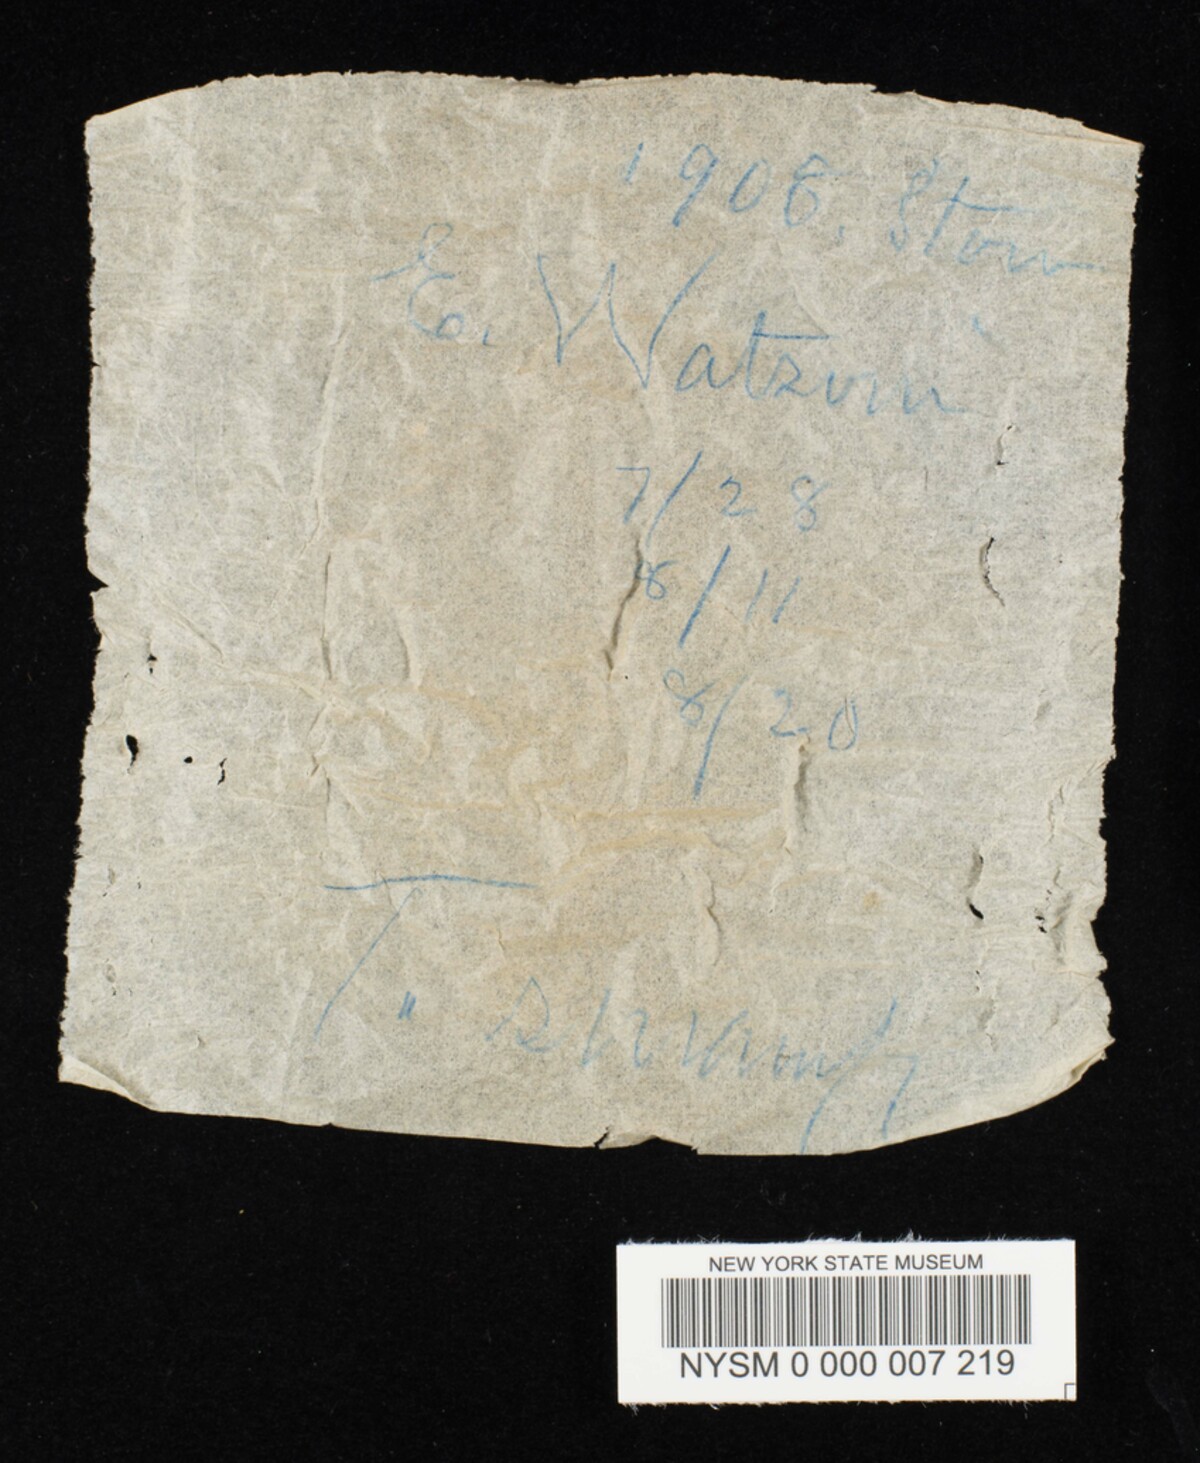 1908. Stow
E. Watson
7/28
8/11
8/20
T.
NEW YORK STATE MUSEUM
NYSM 0 000 007 219